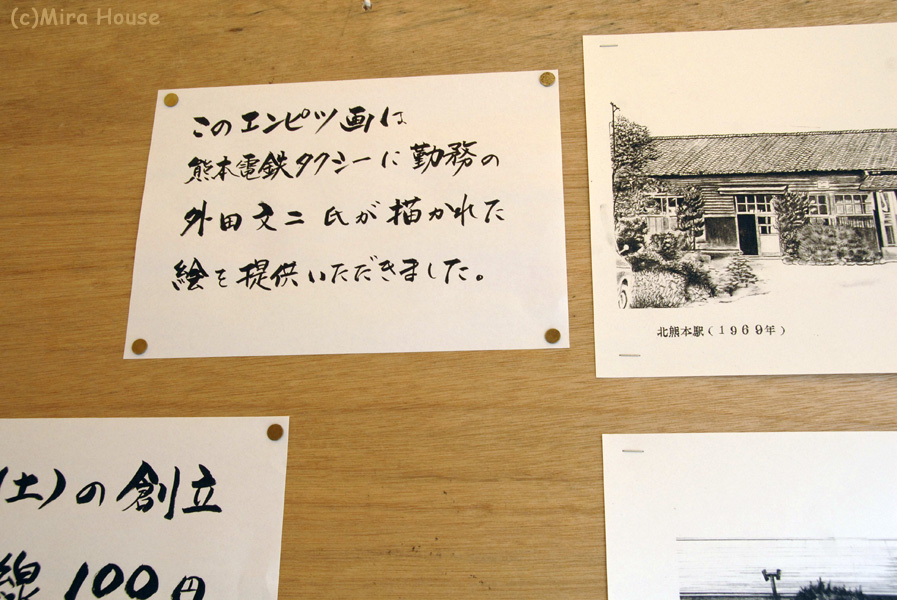 (c)Mira House
このエンピツ画は
熊本電鉄タクシーに勤務の
外田文二氏が描かれた
絵を提供いただきました。
北熊本駅(1969年)
(土)の創立
線 100円